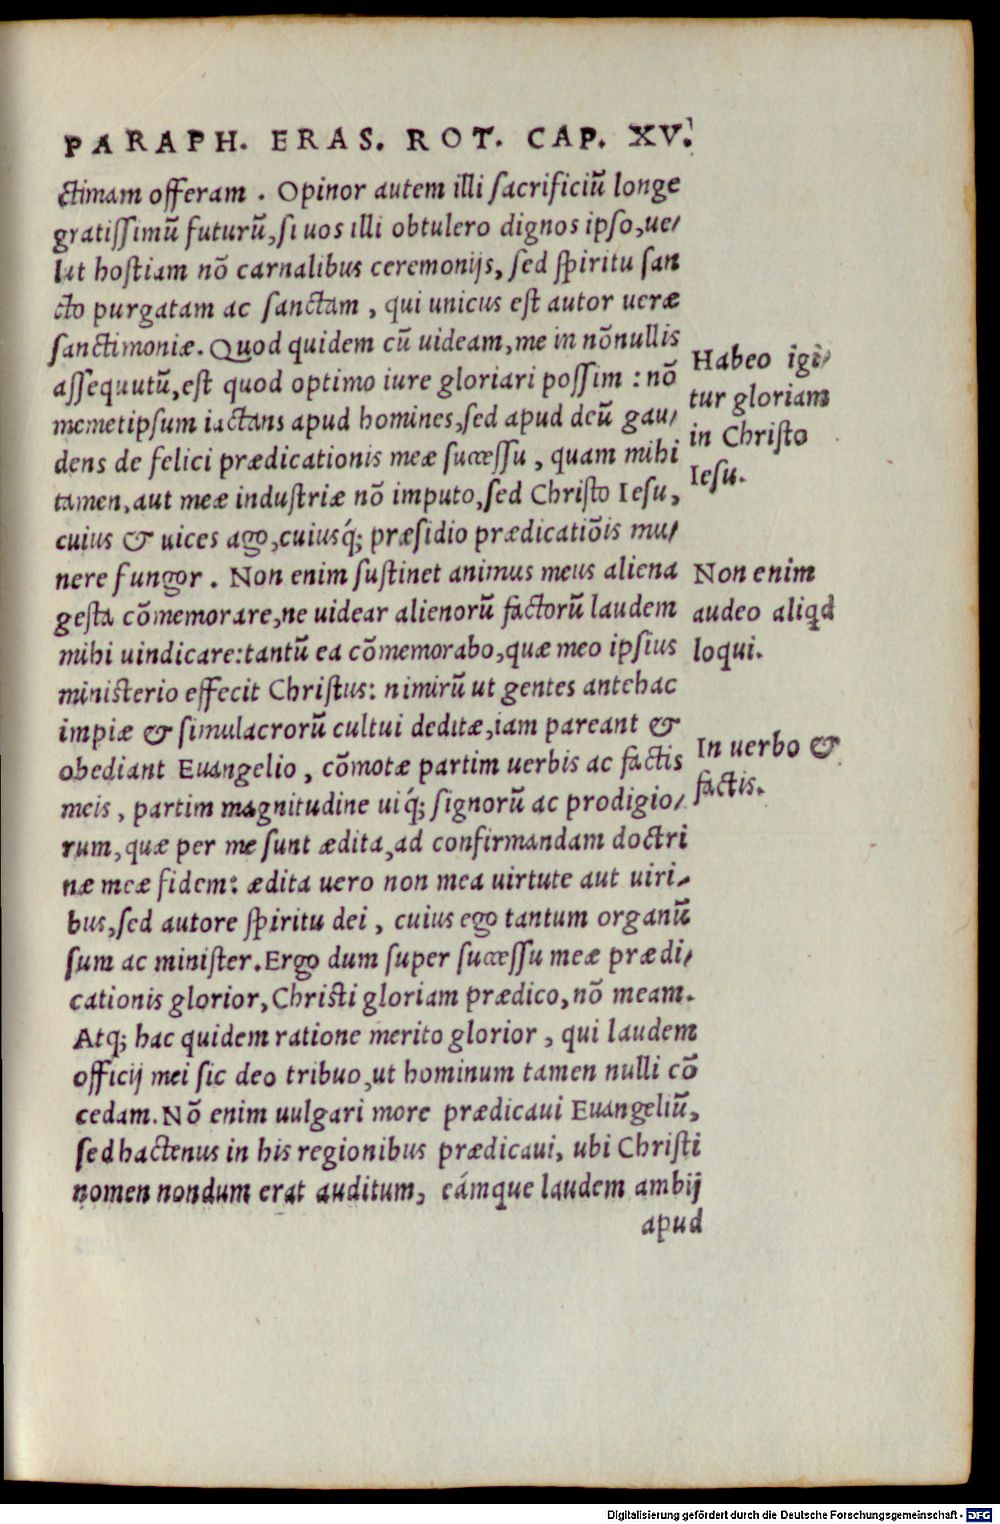 PARAPH. ERAS. ROT. CAP. XV.
ctimam offeram. Opinor autem illi sacrificiū longe
gratissimū futurū, si uos illi obtulero dignos ipso, ue/
lut hostiam nō carnalibus ceremonijs, sed spiritu san
cto purgatam ac sanctam, qui unicus est autor ueræ
sanctimoniæ. Quod quidem cū uideam, me in nōnullis
assequutū, est quod optimo iure gloriari possim: nō
memetipsum iactans apud homines, sed apud deū gau/
dens de felici prædicationis meæ successu, quam mihi
tamen, aut meæ industriæ nō imputo, sed Christo Iesu,
cuius & uices ago, cuiusq́; præsidio prædicatiōis mu/
nere fungor. Non enim sustinet animus meus aliena
gesta cōmemorare, ne uidear alienorū factorū laudem
mihi uindicare: tantū ea cōmemorabo, quæ meo ipsius
ministerio effecit Christus: nimirū ut gentes antehac
impiæ & simulacrorū cultui deditæ, iam pareant &
obediant Euangelio, cōmotæ partim uerbis ac factis
meis, partim magnitudine uiq́; signorū ac prodigio/
rum, quæ per me sunt ædita, ad confirmandam doctri
næ meæ fidem: ædita uero non mea uirtute aut uiri/
bus, sed autore spiritu dei, cuius ego tantum organū
sum ac minister. Ergo dum super successu meæ prædi/
cationis glorior, Christi gloriam prædico, nō meam.
Atq; hac quidem ratione merito glorior, qui laudem
officij mei sic deo tribuo, ut hominum tamen nulli cō
cedam. Nō enim uulgari more prædicaui Euangeliū,
sed hactenus in his regionibus prædicaui, ubi Christi
nomen nondum erat auditum, eámque laudem ambij
apud
Habeo igi/
tur gloriam
in Christo
Iesu.
Non enim
audeo aliqd
loqui.
In uerbo &
factis.
Digitalisierung gefördert durch die Deutsche Forschungsgemeinschaft - DFG